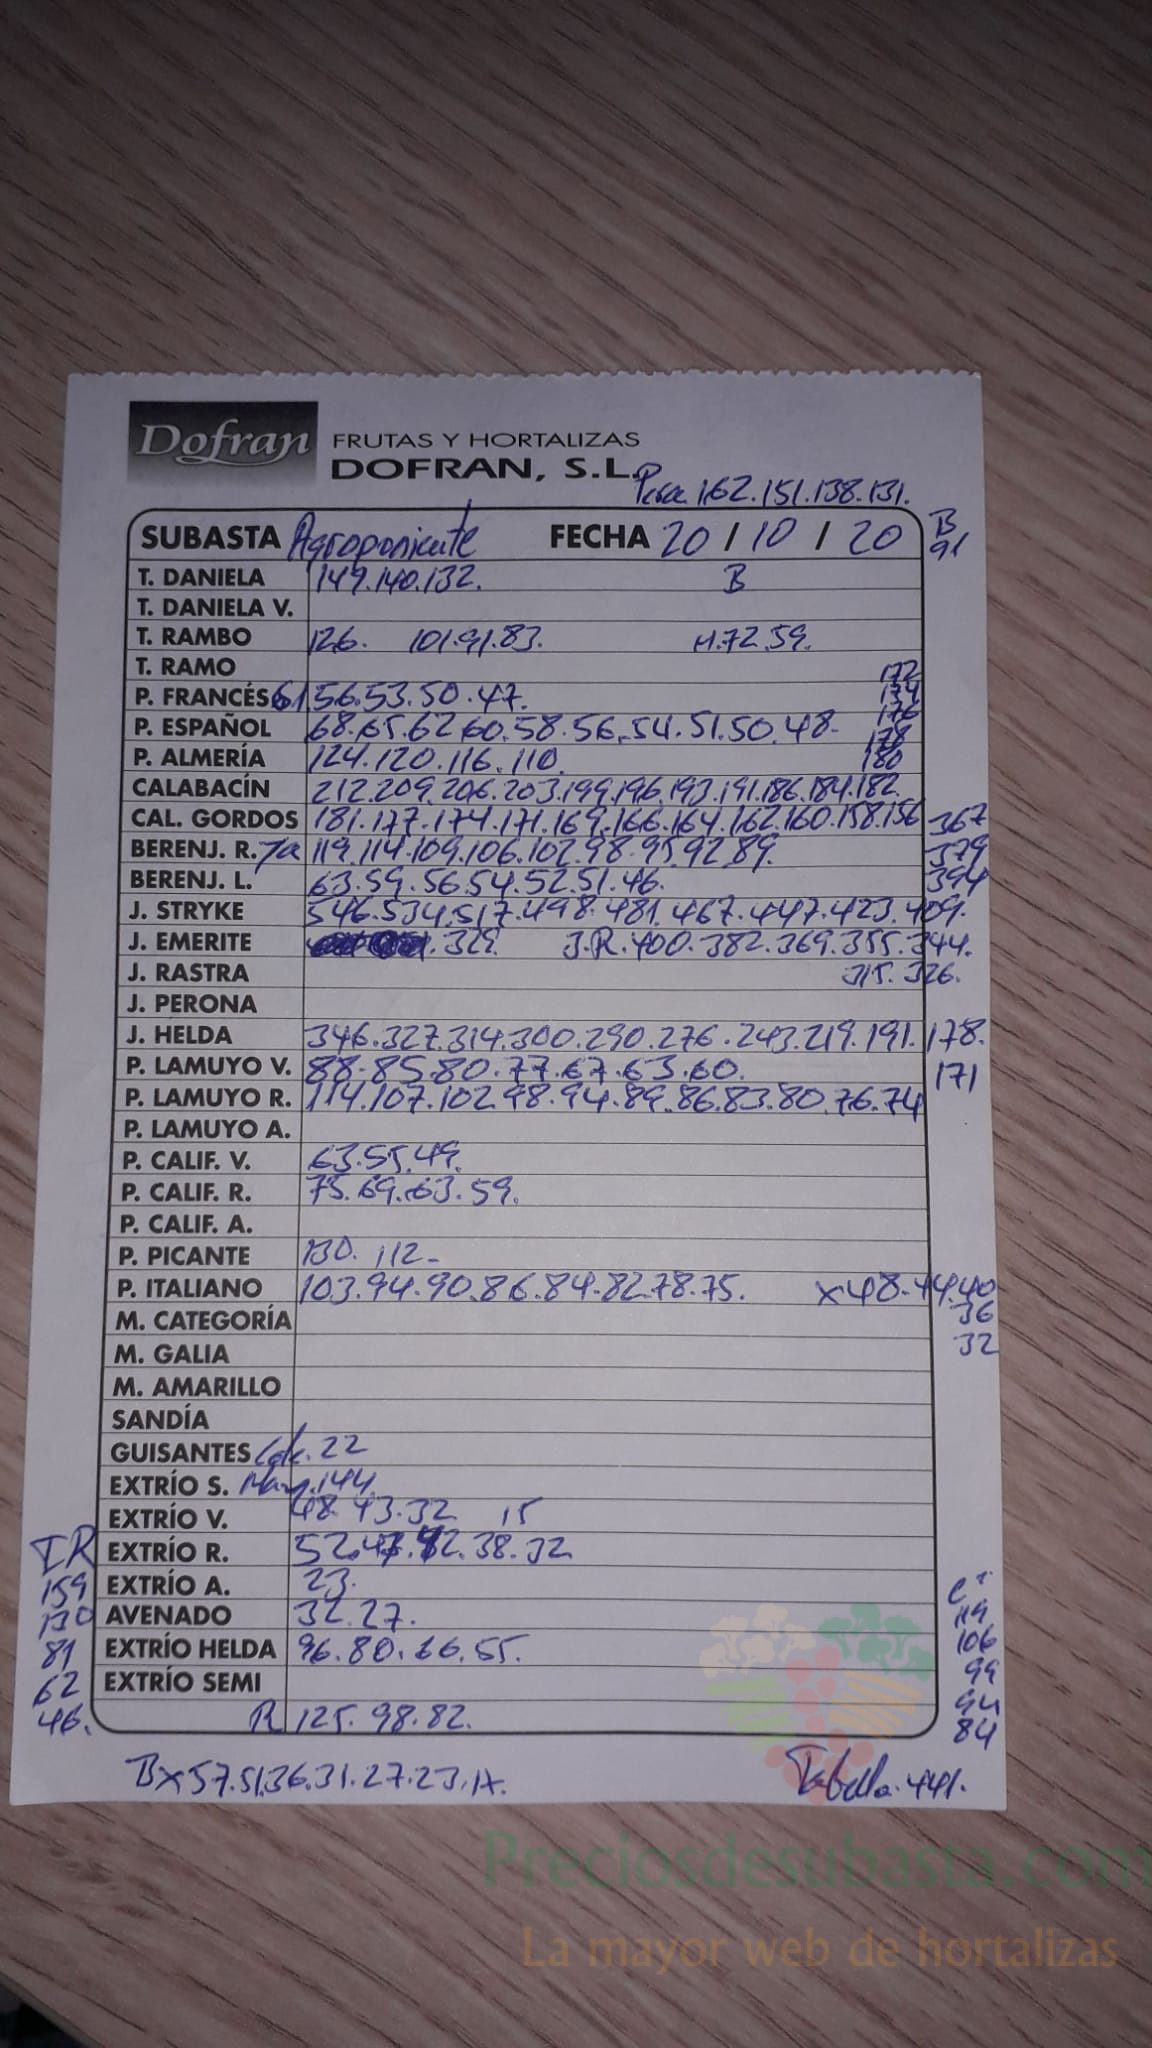 Dofran FRUTAS Y HORTALIZAS
DOFRAN, S.L.
Pera 162.151.138.131.
SUBASTA Agroponiente FECHA 20 / 10 / 20 B
91
T. DANIELA 149.140.132. B
T. DANIELA V.
T. RAMBO 126. 101.91.83. H.72.59.
T. RAMO 172
P. FRANCÉS 61.56.53.50.47. 174
176
P. ESPAÑOL 68.65.62.60.58.56.54.51.50.48. 178
P. ALMERÍA 124.120.116.110. 180
CALABACÍN 212.209.206.203.199.196.193.191.186.184.182.
CAL. GORDOS 181.177.174.171.169.166.164.162.160.158.156 367
BERENJ. R. 119.114.109.106.102.98.95.92.89. 379
BERENJ. L. 63.59.56.54.52.51.46. 394
J. STRYKE 546.534.517.498.481.467.447.423.409.
J. EMERITE .329. J.R.400.382.369.355.344.
J. RASTRA 315.326.
J. PERONA
J. HELDA 346.327.314.300.290.276.243.219.191.178.
P. LAMUYO V. 88.85.80.77.67.63.60. 171
P. LAMUYO R. 114.107.102.98.94.89.86.83.80.76.74
P. LAMUYO A.
P. CALIF. V. 63.55.49.
P. CALIF. R. 75.69.63.59.
P. CALIF. A.
P. PICANTE 130. 112-
P. ITALIANO 103.94.90.86.84.82.78.75. x48.44.40
36
M. CATEGORÍA
32
M. GALIA
M. AMARILLO
SANDÍA
GUISANTES 22
EXTRÍO S. 144
EXTRÍO V. 48.43.32 15
IR EXTRÍO R. 52.47.42.38.32
159 EXTRÍO A. 23.
130 AVENADO 32.27. 119
81 EXTRÍO HELDA 96.80.66.55. 106
62 EXTRÍO SEMI 99
94
46. R 125.98.82. 84
Bx57.51.36.31.27.23.17. Tabella.441.
Preciosdesubasta.com
La mayor web de hortalizas